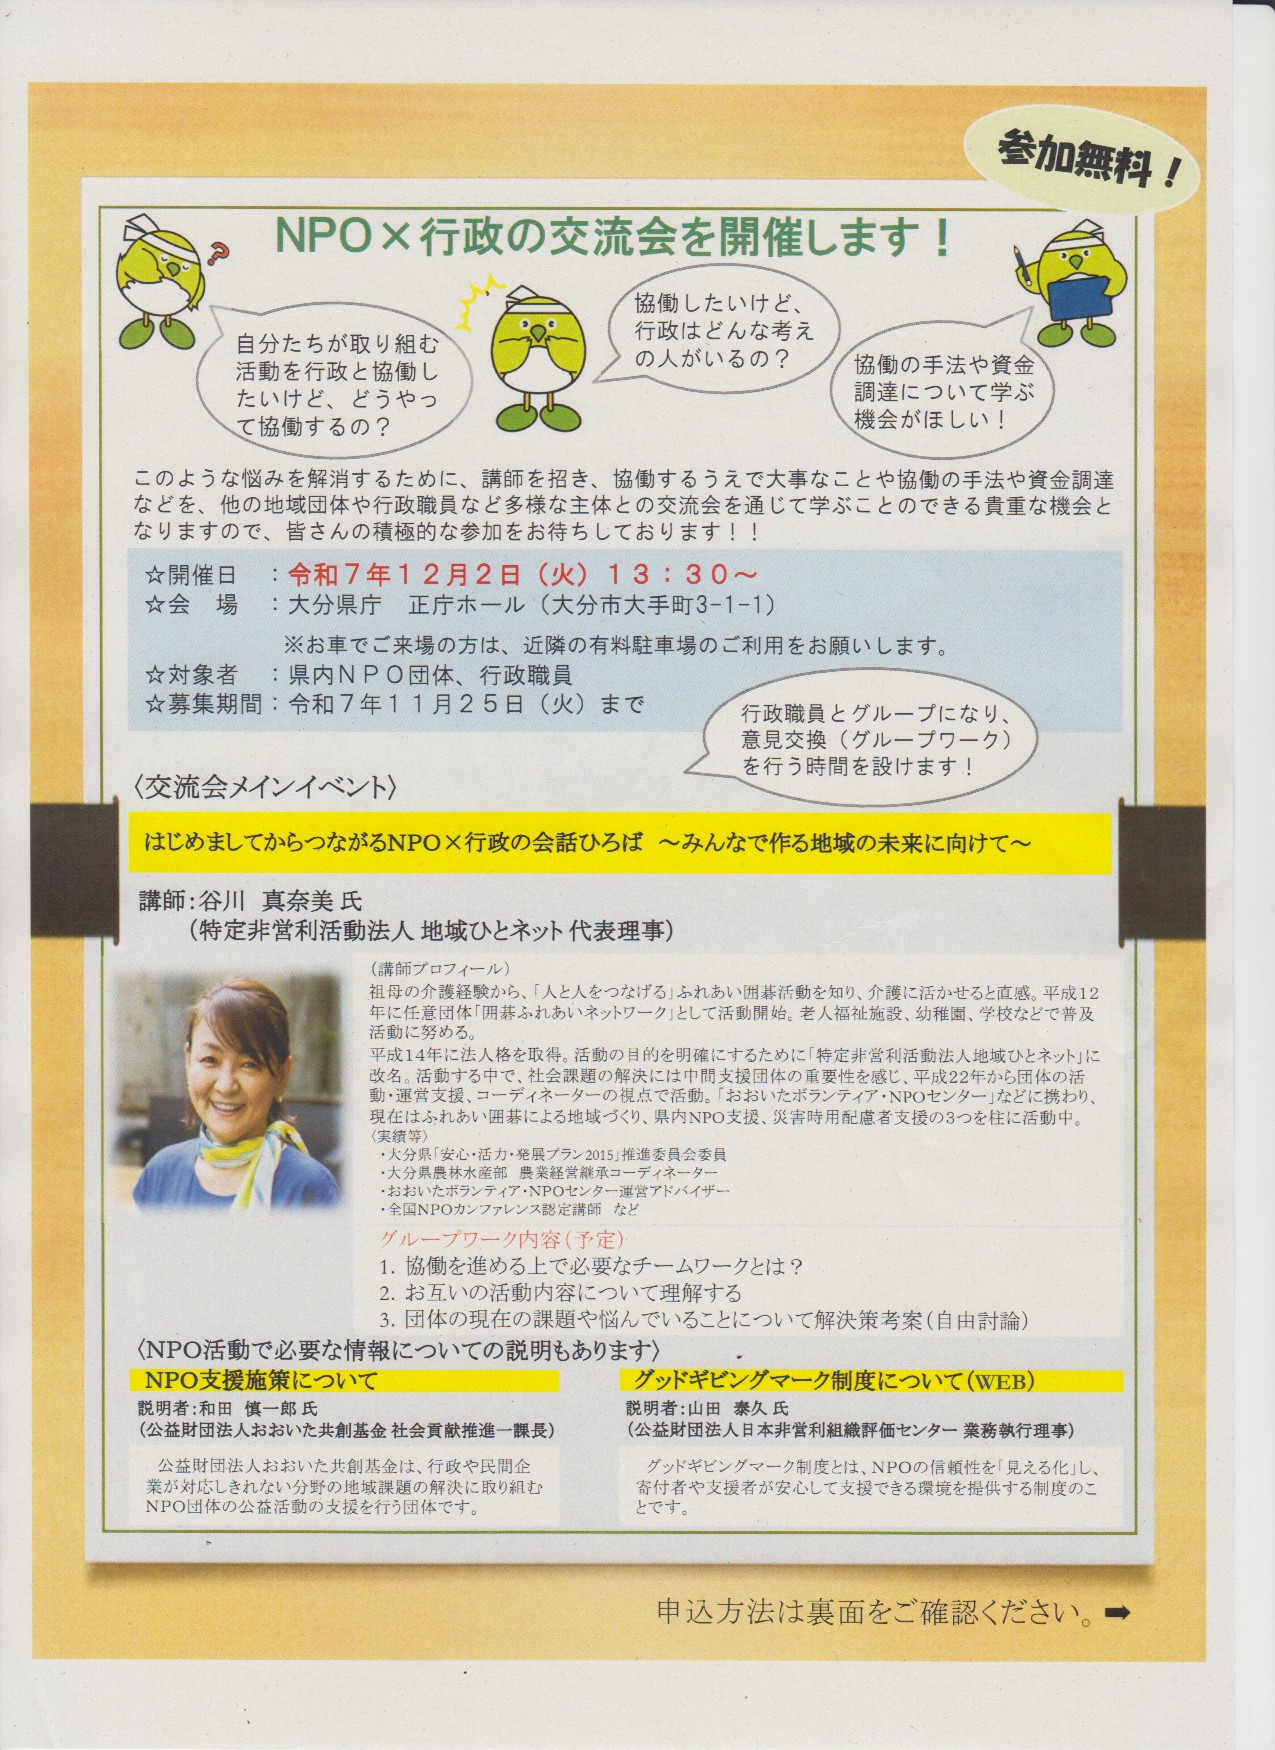 参加無料！
NPO×行政の交流会を開催します！
?
自分たちが取り組む
活動を行政と協働し
たいけど、どうやっ
て協働するの？
協働したいけど、
行政はどんな考え
の人がいるの？
協働の手法や資金
調達について学ぶ
機会がほしい！
このような悩みを解消するために、講師を招き、協働するうえで大事なことや協働の手法や資金調達
などを、他の地域団体や行政職員など多様な主体との交流会を通じて学ぶことのできる貴重な機会と
なりますので、皆さんの積極的な参加をお待ちしております！！
☆開催日　：令和７年１２月２日（火）１３：３０～
☆会　場　：大分県庁　正庁ホール（大分市大手町3-1-1）
※お車でご来場の方は、近隣の有料駐車場のご利用をお願いします。
☆対象者　：県内ＮＰＯ団体、行政職員
☆募集期間：令和７年１１月２５日（火）まで
行政職員とグループになり、
意見交換（グループワーク）
を行う時間を設けます！
〈交流会メインイベント〉
はじめましてからつながるNPO×行政の会話ひろば　～みんなで作る地域の未来に向けて～
講師：谷川　真奈美 氏
（特定非営利活動法人 地域ひとネット 代表理事）
（講師プロフィール）
祖母の介護経験から、「人と人をつなげる」ふれあい囲碁活動を知り、介護に活かせると直感。平成１２
年に任意団体「囲碁ふれあいネットワーク」として活動開始。老人福祉施設、幼稚園、学校などで普及
活動に努める。
平成１４年に法人格を取得。活動の目的を明確にするために「特定非営利活動法人地域ひとネット」に
改名。活動する中で、社会課題の解決には中間支援団体の重要性を感じ、平成22年から団体の活
動・運営支援、コーディネーターの視点で活動。「おおいたボランティア・NPOセンター」などに携わり、
現在はふれあい囲碁による地域づくり、県内NPO支援、災害時用配慮者支援の3つを柱に活動中。
〈実績等〉
・大分県「安心・活力・発展プラン2015」推進委員会委員
・大分県農林水産部　農業経営継承コーディネーター
・おおいたボランティア・NPOセンター運営アドバイザー
・全国NPOカンファレンス認定講師　など
グループワーク内容（予定）
1. 協働を進める上で必要なチームワークとは？
2. お互いの活動内容について理解する
3. 団体の現在の課題や悩んでいることについて解決策考案（自由討論）
〈NPO活動で必要な情報についての説明もあります〉
NPO支援施策について
説明者：和田　慎一郎 氏
（公益財団法人おおいた共創基金 社会貢献推進一課長）
公益財団法人おおいた共創基金は、行政や民間企
業が対応しきれない分野の地域課題の解決に取り組む
NPO団体の公益活動の支援を行う団体です。
グッドギビングマーク制度について（WEB）
説明者：山田　泰久 氏
（公益財団法人日本非営利組織評価センター 業務執行理事）
グッドギビングマーク制度とは、NPOの信頼性を「見える化」し、
寄付者や支援者が安心して支援できる環境を提供する制度のこ
とです。
申込方法は裏面をご確認ください。➡